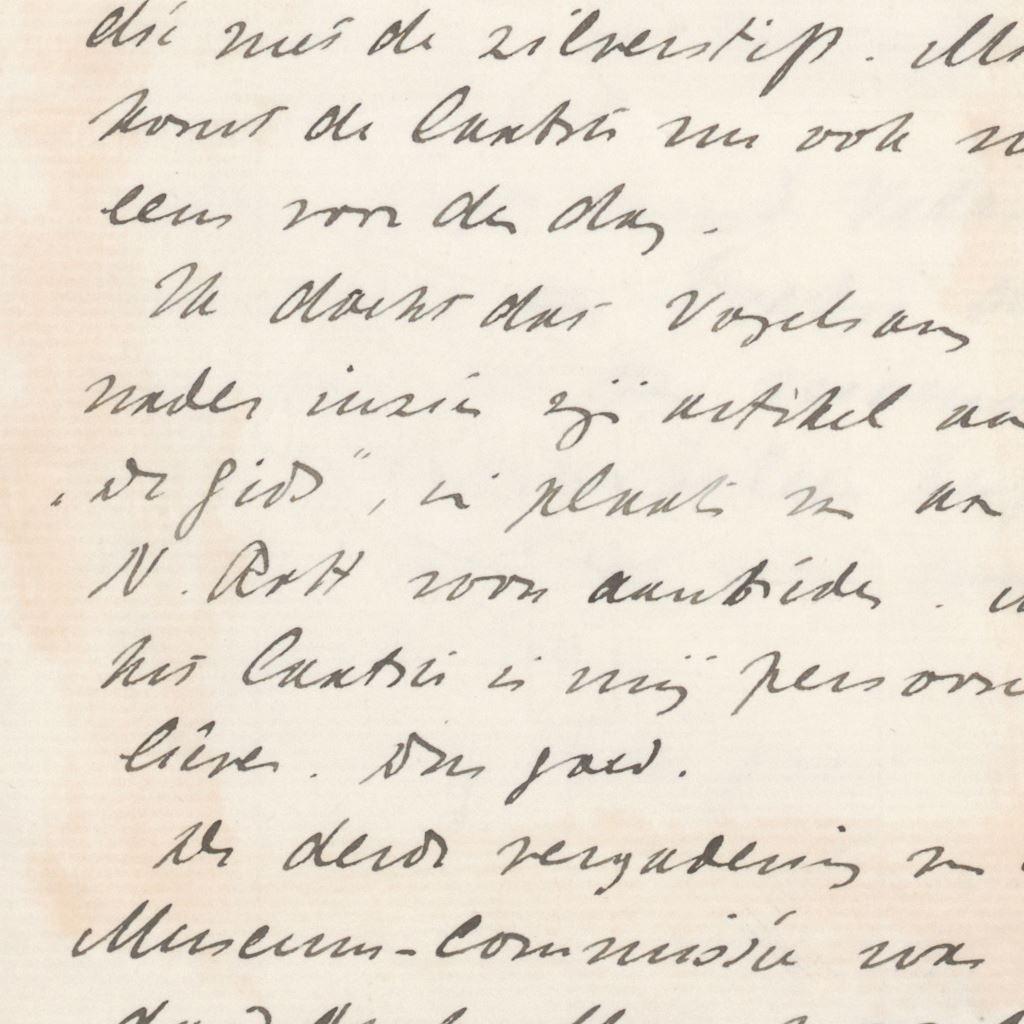 die met de zilverstift. 
komt de laatste nu ook
eens voor den dag.
Ik dacht dat Vogelsang
nader inzien zijn artikel aan
„de Gids”, in plaats van aan
N. Rott zou aanbieden.
het laatste is mij persoon
liever. Dus goed.
De derde vergadering van
Museum-commissie was